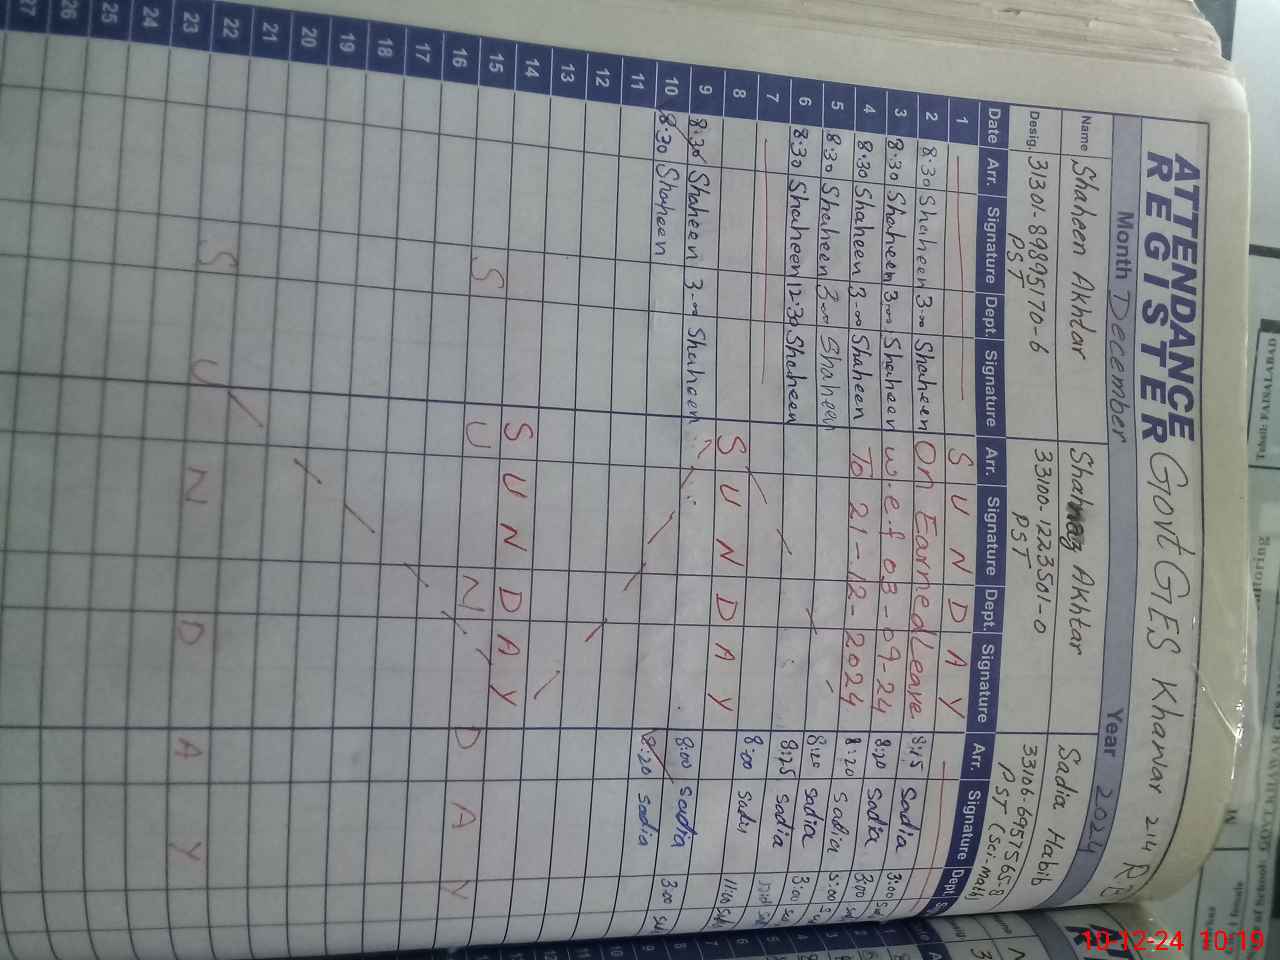 ATTENDANCE
REGISTER
Govt GES Kharwar 214 RB
Month December Year 2024
Name Shaheen Akhtar Shahnaz Akhtar Sadia Habib
Desig. 31301-89895170-6 33100-1223501-0 33106-6957565-8
PST PST PST (Sci-math)
Date Arr. Signature Dept. Signature Arr. Signature Dept. Signature Arr. Signature Dept.
1 SUNDAY
2 8:30 Shaheen 3:00 Shaheen On Earned Leave 8:15 Sadia 3:00
3 8:30 Shaheen 3:00 Shaheen w.e.f 03-09-24 8:20 Sadia 3:00
4 8:30 Shaheen 3:00 Shaheen To 21-12-2024 8:20 Sadia 3:00
5 8:30 Shaheen 3:00 Shaheen 8:20 Sadia 3:00
6 8:30 Shaheen 12:30 Shaheen 8:25 Sadia
7 8:00 Sadia 11:00
8 SUNDAY
9 8:30 Shaheen 3:00 Shaheen 8:00 Sadia 3:00
10 8:30 Shaheen 8:20 Sadia
11
12
13
14
15 SUNDAY
16 SUNDAY
17
18
19
20
21
22
23 SUNDAY
24
25
26
27
10-12-24 10:19